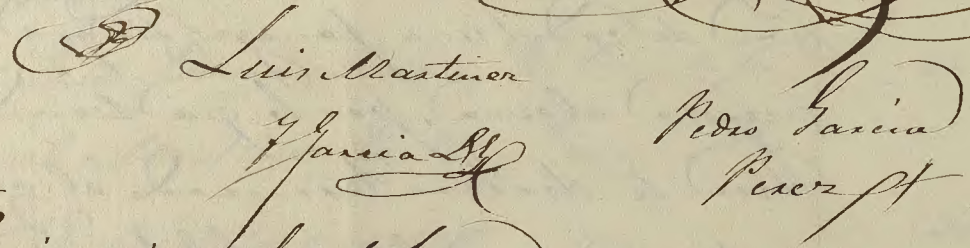 Luis Martinez
Garcia
Pedro Garcia
Perez